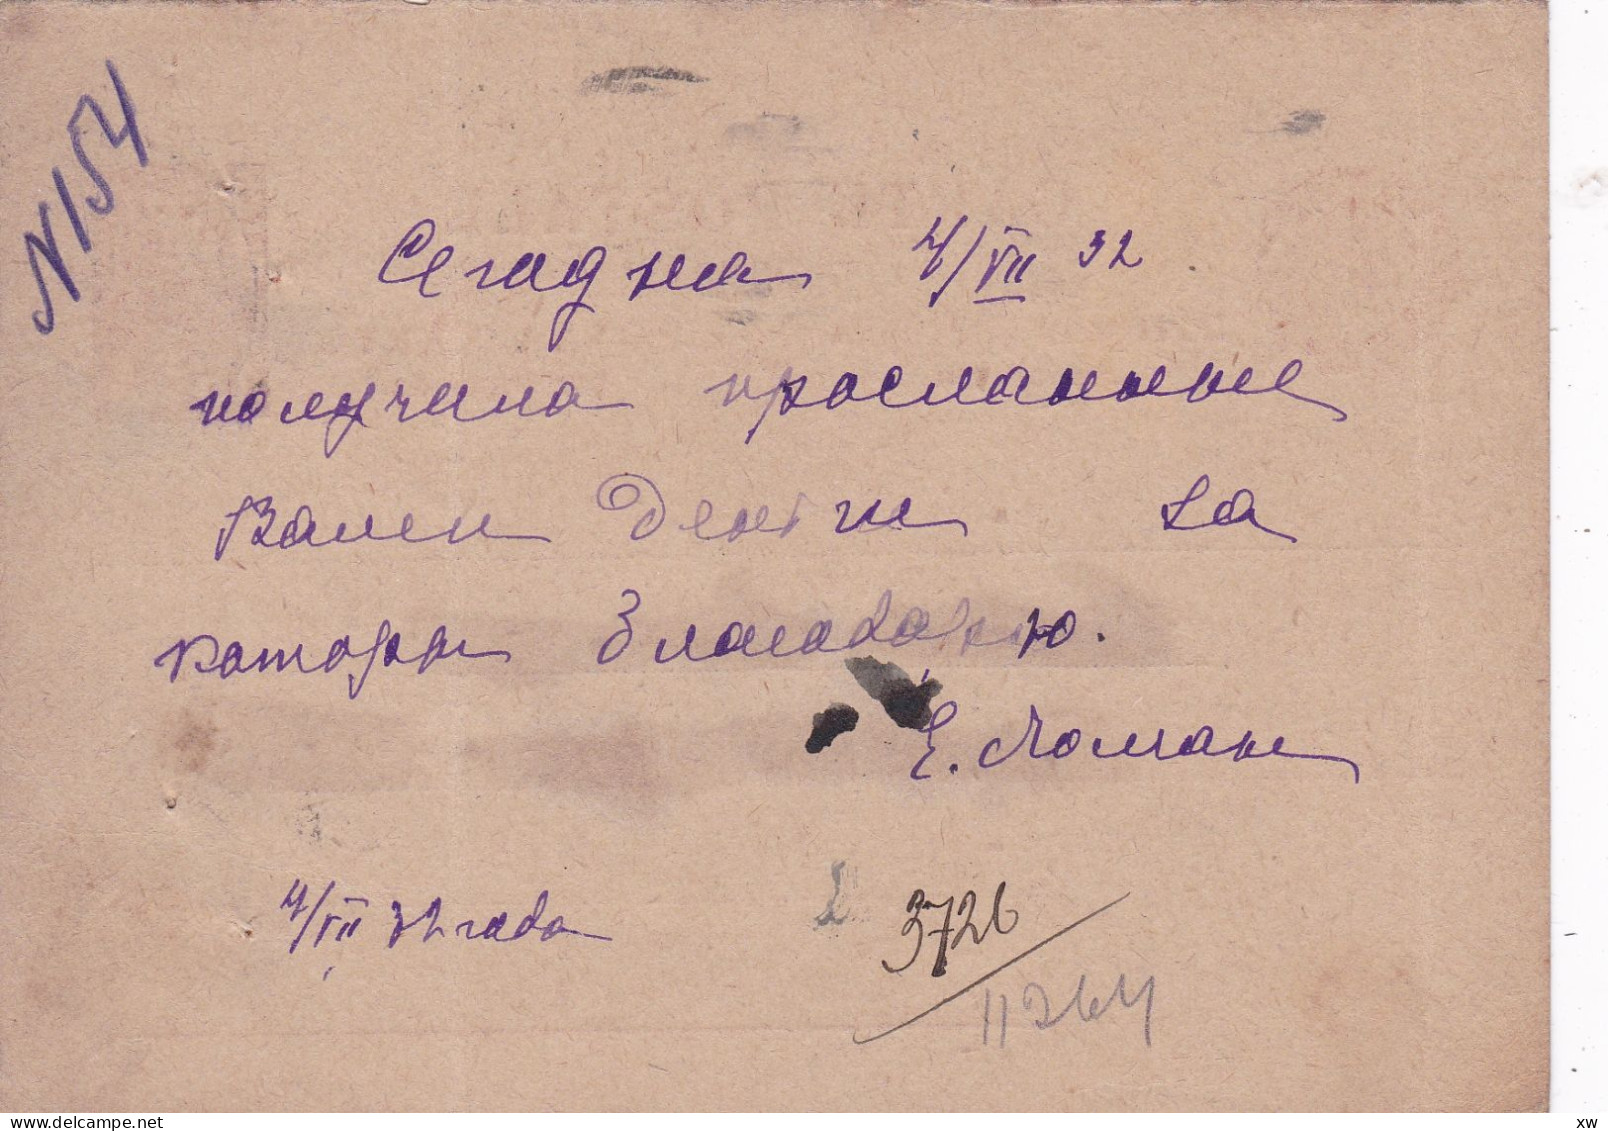 N154
Сегадна 4/VII 32
получила просланные
Вамеи Денги за
каторы благадарю.
Е. Ломан
4/VII 32 года
3726
11264
xw